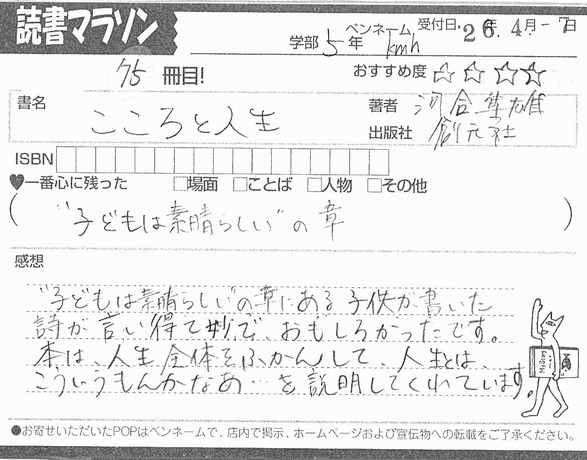 読書マラソン
学部 5年 ペンネーム kmh 受付日 26年4月-7日
75 冊目! おすすめ度 ☆☆☆☆
書名 こころと人生
著者 河合隼雄
出版社 創元社
ISBN
♥一番心に残った □場面 □ことば □人物 □その他
("子どもは素晴らしい"の章)
感想
"子どもは素晴らしい"の章にある子供が書いた
詩が言い得て妙で、おもしろかったです。
本は、人生全体をふかんして、人生とは、
こういうもんかなあ…を説明してくれています。
●お寄せいただいたPOPはペンネームで、店内で掲示、ホームページおよび宣伝物への転載をご了承ください。